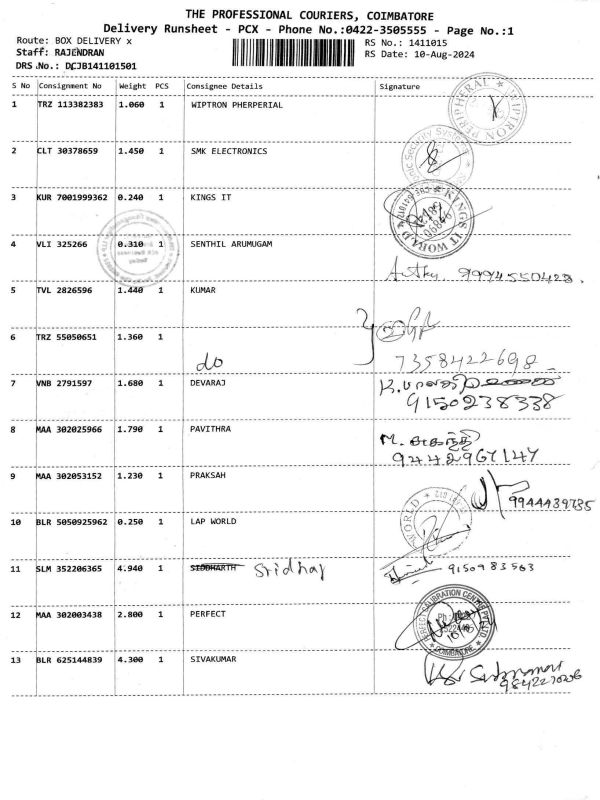 THE PROFESSIONAL COURIERS, COIMBATORE
Delivery Runsheet - PCX - Phone No.:0422-3505555 - Page No.:1
Route: BOX DELIVERY x
RS No.: 1411015
Staff: RAJENDRAN
RS Date: 10-Aug-2024
DRS No.: DCJB141101501
S No Consignment No Weight PCS Consignee Details Signature
1 TRZ 113382383 1.060 1 WIPTRON PHERPERIAL
WIPTRON PERIPHERAL
2 CLT 30378659 1.450 1 SMK ELECTRONICS
3 KUR 7001999362 0.240 1 KINGS IT
KINGS IT WORLD
4 VLI 325266 0.310 1 SENTHIL ARUMUGAM
9994550428
5 TVL 2826596 1.440 1 KUMAR
6 TRZ 55050651 1.360 1
do
7358422698
7 VNB 2791597 1.680 1 DEVARAJ
9150238338
8 MAA 302025966 1.790 1 PAVITHRA
9442967147
9 MAA 302053152 1.230 1 PRAKSAH
9944439785
10 BLR 5050925962 0.250 1 LAP WORLD
WORLD
11 SLM 352206365 4.940 1 SIDDHARTH Sridhar
9150983563
12 MAA 302003438 2.800 1 PERFECT
PERFECT CALIBRATION CENTRE PVT LTD
COIMBATORE
13 BLR 625144839 4.300 1 SIVAKUMAR
9842270206